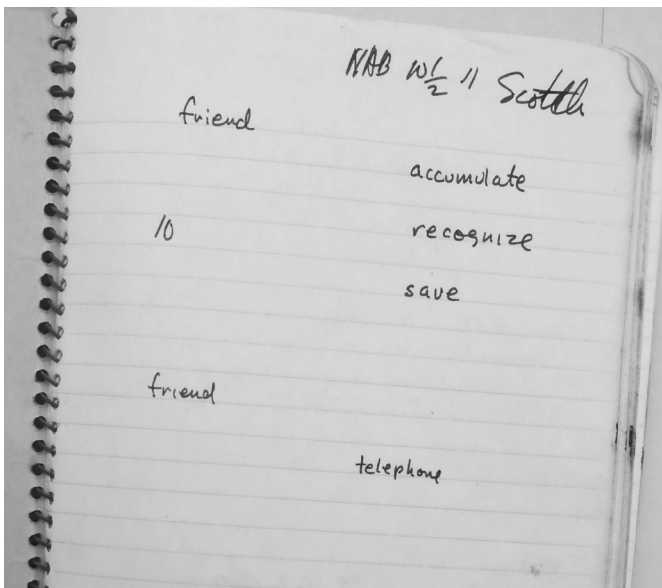 NAB w/ 1/2 " Scotch
friend
accumulate
10 recognize
save
friend
telephone